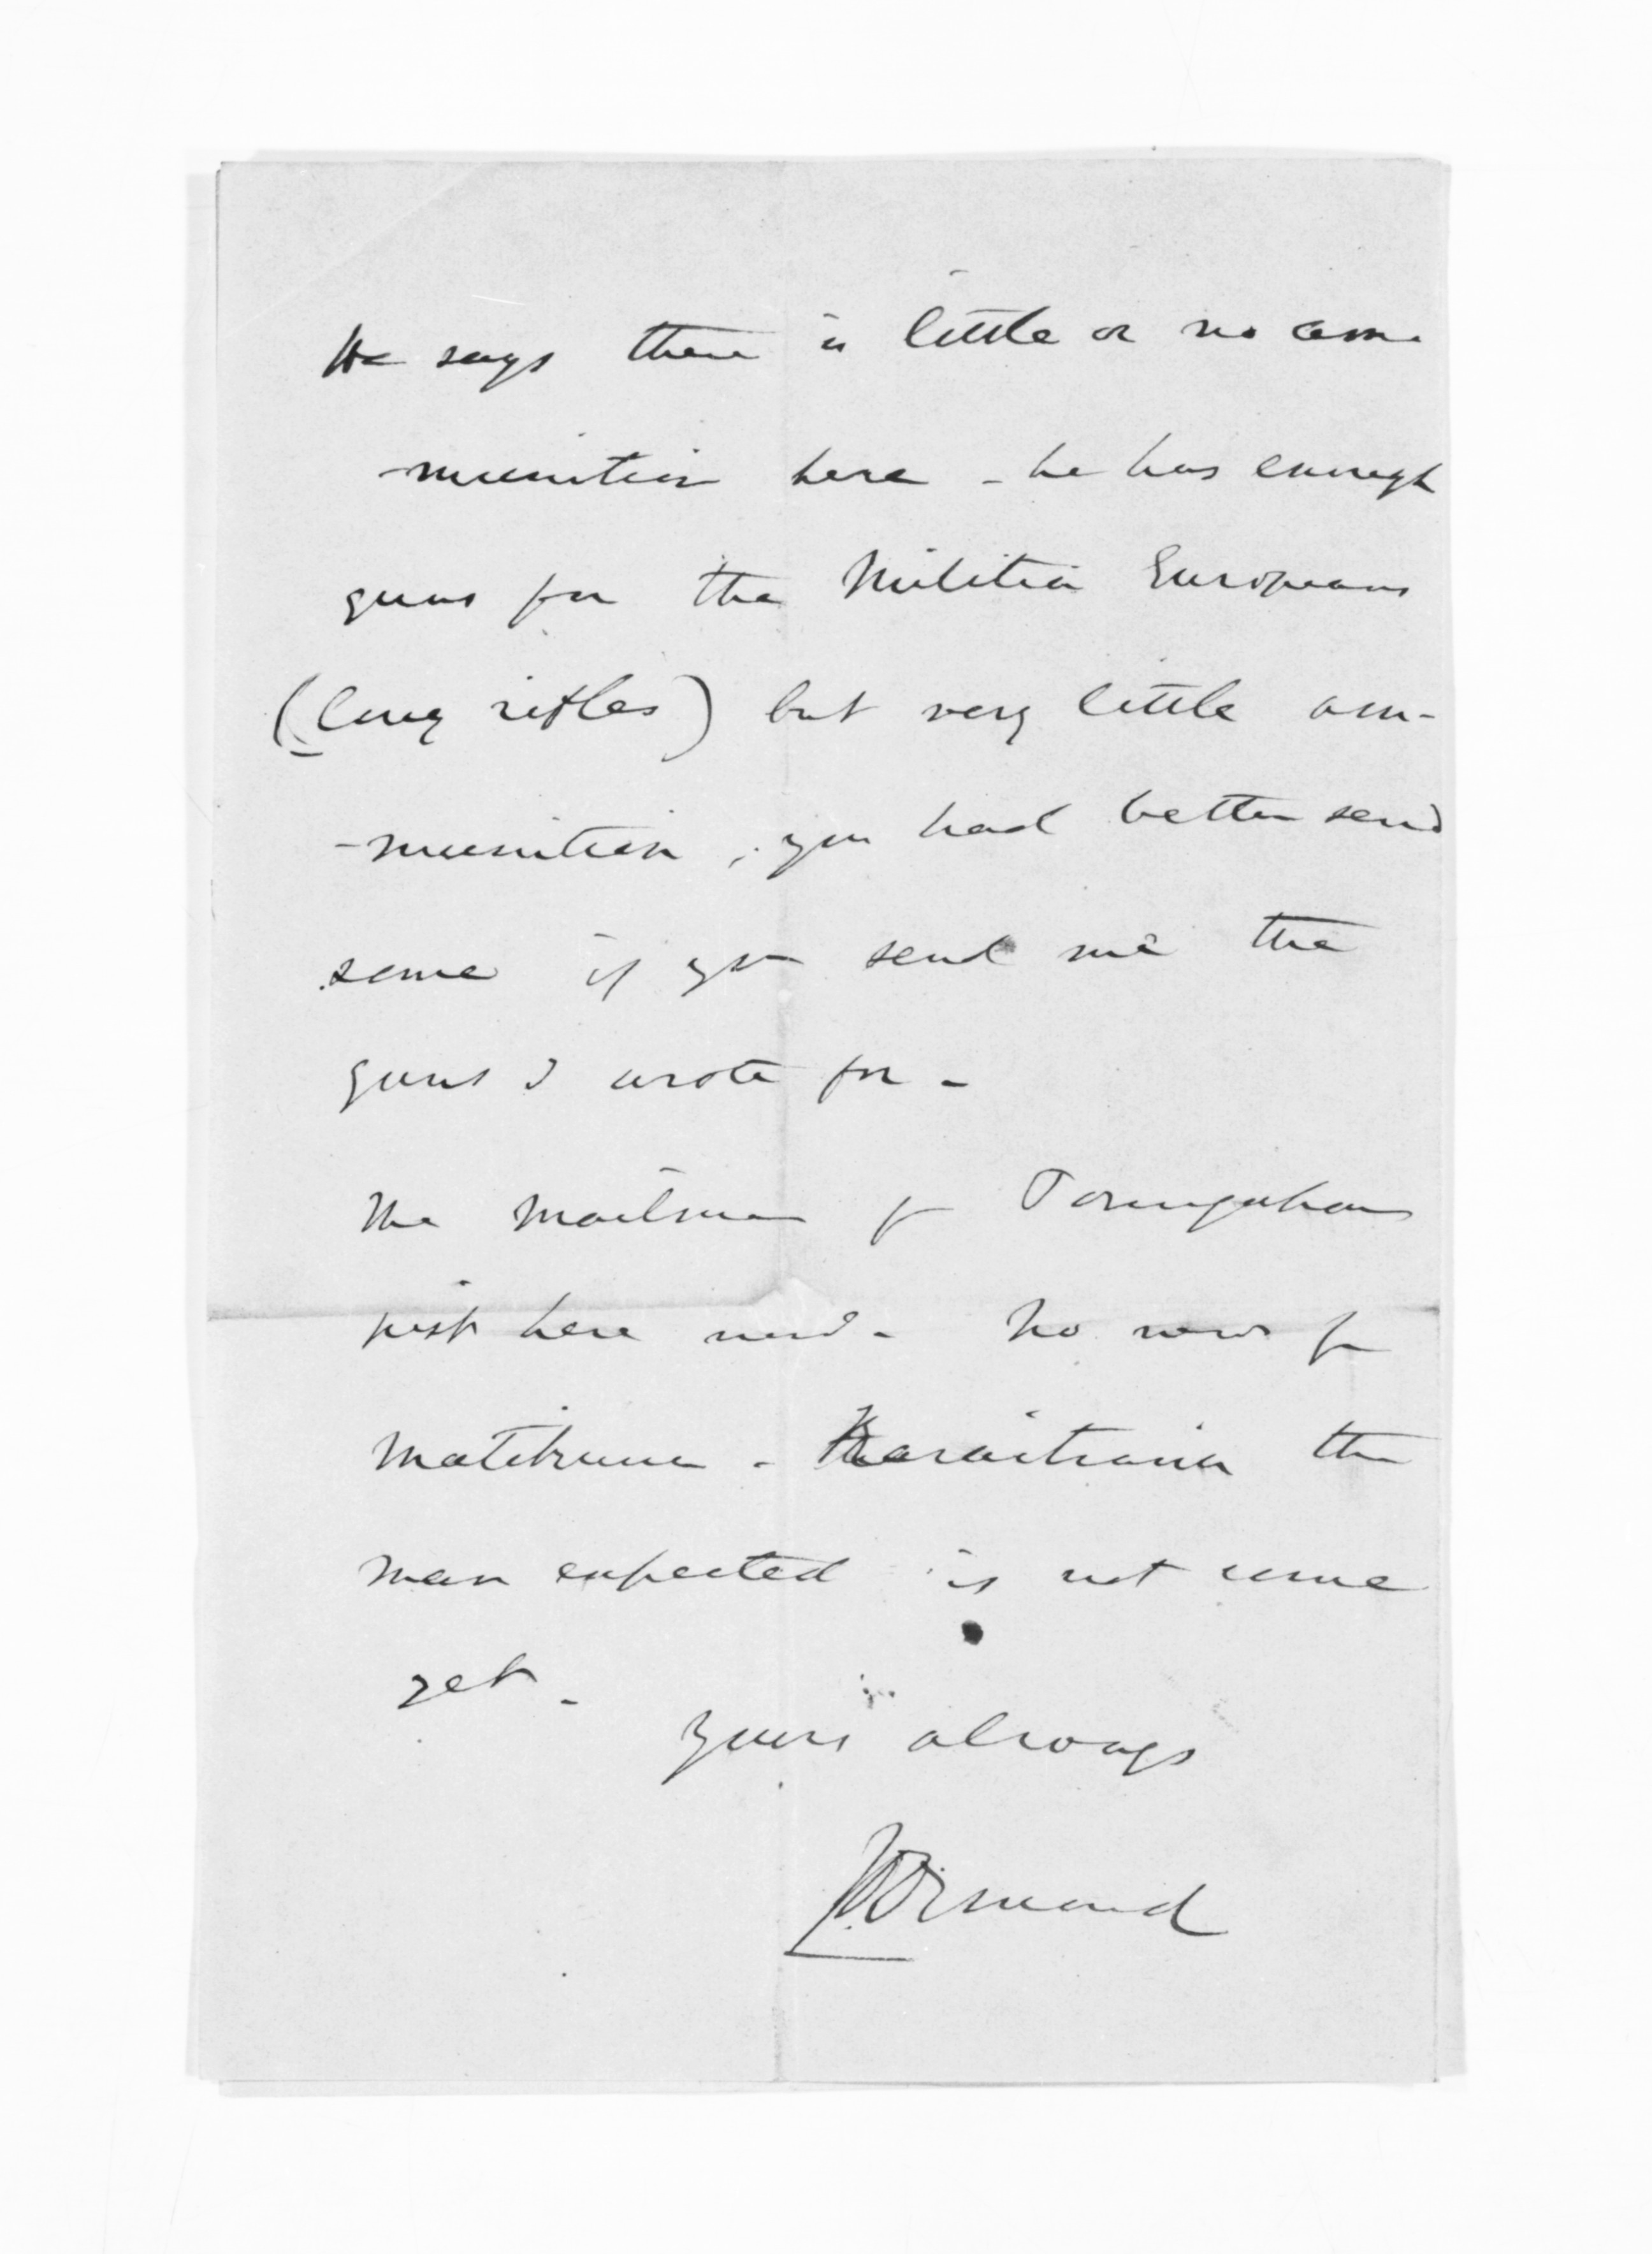 He says there is little or no am-
-munition here - he has enough
guns for the Militia Europeans
(long rifles) but very little am-
-munition, you had better send
some if you send me the
guns I wrote for -
The Mailman fr Poverty
just here now - No news fr
Matchrua - Karaitiana the
man expected is not come
yet -
Yours always
JD Ormond